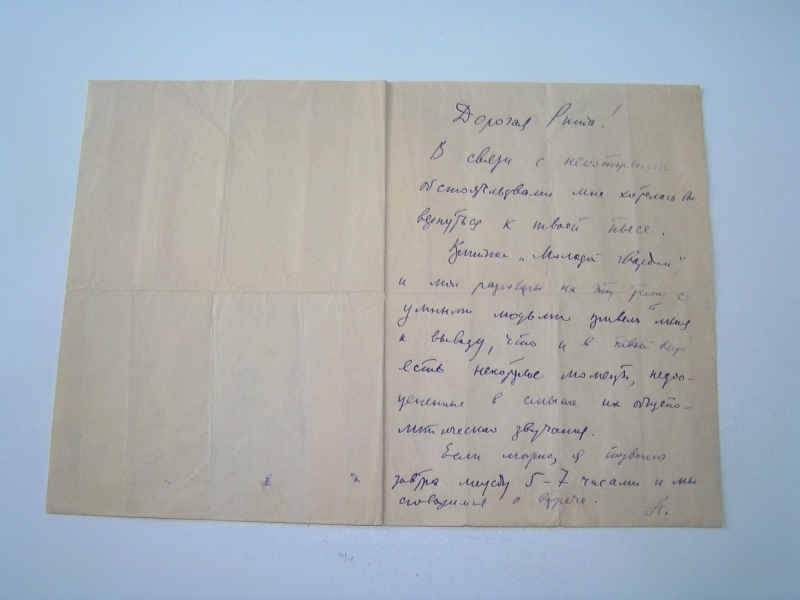 Дорогая Рита!
В связи с некоторыми
обстоятельствами мне хотелось бы
вернуться к твоей пьесе.
Критика „Молодой гвардии"
и мои разговоры на эту тему с
умными людьми привели меня
к выводу, что и в твоей вещи
есть некоторые моменты, недоо-
цененные в смысле их общепо-
литического звучания.
Если можно, я позвоню
завтра между 5-7 часами и мы
сговоримся о встрече.
А.